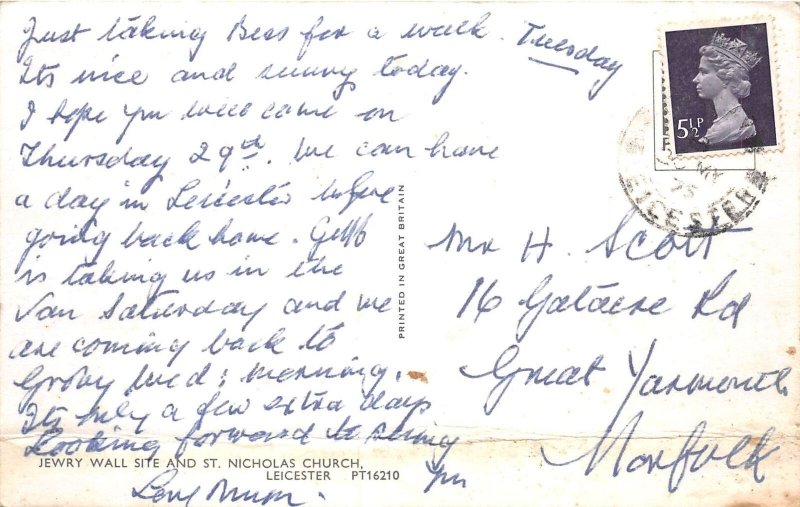 Just taking Bess for a walk. Tuesday
Its nice and sunny today.
I hope you will come on
Thursday 29th. We can have
a day in Leicester before
going back home.
is taking us in the
Van Saturday and we
are coming back to
Groby Wed: morning.
Its only a few extra days
Looking forward to seeing
you
Love Mum.
PRINTED IN GREAT BRITAIN
JEWRY WALL SITE AND ST. NICHOLAS CHURCH,
LEICESTER PT16210
5½P
MY
75
LEICESTER
Mr H. Scott
16 Gatacre Rd
Great Yarmouth
Norfolk